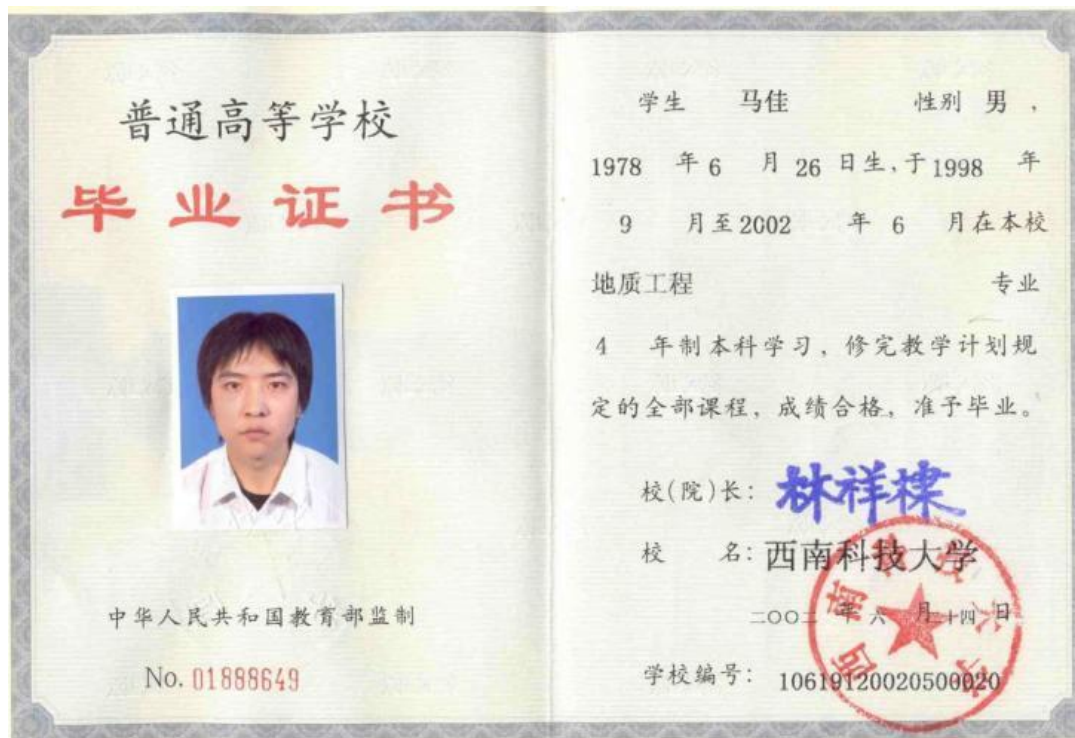 普通高等学校
毕业证书
中华人民共和国教育部监制
No. 01888649
学生 马佳 性别 男，
1978 年 6 月 26 日生，于 1998 年
9 月至 2002 年 6 月在本校
地质工程 专业
4 年制本科学习，修完教学计划规
定的全部课程，成绩合格，准予毕业。
校(院)长： 林祥棣
校 名：西南科技大学
二〇〇二 年 六 月二十四 日
学校编号： 10619120020500020
西南科技大学